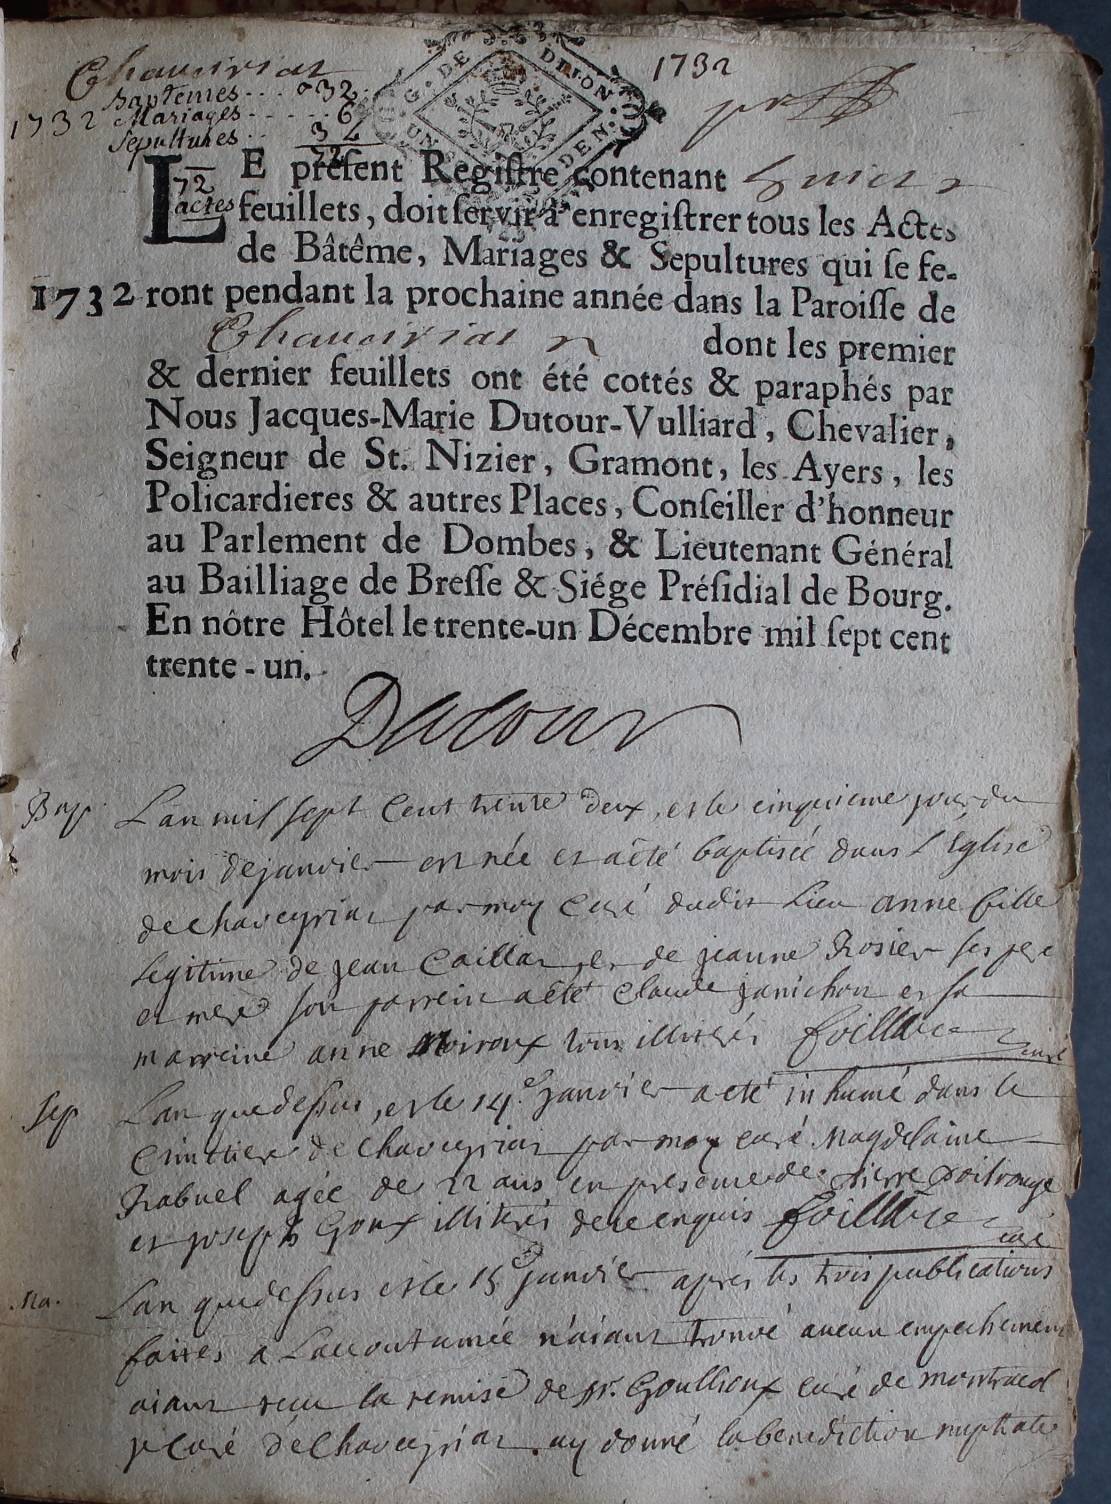 Chaveiriat
Baptemes... 032
1732 Mariages..... 6
Sepultures.. 34
72
72 actes
G. DE DIJON
UN DEN.
1732
LE présent Regiſtre contenant huict
feuillets, doit ſervir à enregiſtrer tous les Actes
de Bâtême, Mariages & Sepultures qui ſe fe-
1732 ront pendant la prochaine année dans la Paroiſſe de
Chaveiriat dont les premier
& dernier feuillets ont été cottés & paraphés par
Nous Jacques-Marie Dutour-Vulliard, Chevalier,
Seigneur de St. Nizier, Gramont, les Ayers, les
Policardieres & autres Places, Conſeiller d'honneur
au Parlement de Dombes, & Lieutenant Général
au Bailliage de Breſſe & Siége Préſidial de Bourg.
En nôtre Hôtel le trente-un Décembre mil ſept cent
trente-un.
Dutour
Bap. Lan mil sept cent trente deux, et le cinquieme jour du
mois de janvier est née et a été baptisée dans L'Eglise
de chaveyriat par moy curé dudit Lieu anne fille
Legitime de jean Caillat et de jeanne Rosier ses pere
et mere son parrein a été claude janichon et sa
marreine anne Moiroux tous illiterés foillare
curé
Sep Lan que dessus, et le 14.e janvier a eté inhumé dans le
Cimetiere de chaveyriat par moy curé Magdelaine
Rabuel agée de 22 ans en presence de pierre poilrouge
et joseph Goux illiterés de ce enquis foillare
curé
Ma. Lan que dessus et le 15e janvier après les trois publications
faites a Laccoutumée n'aiant trouvé aucun empechement
aiant recu la remise de Mr. Goullioux curé de montracol
je curé de Chaveyriat ay donné la benediction nuptiale